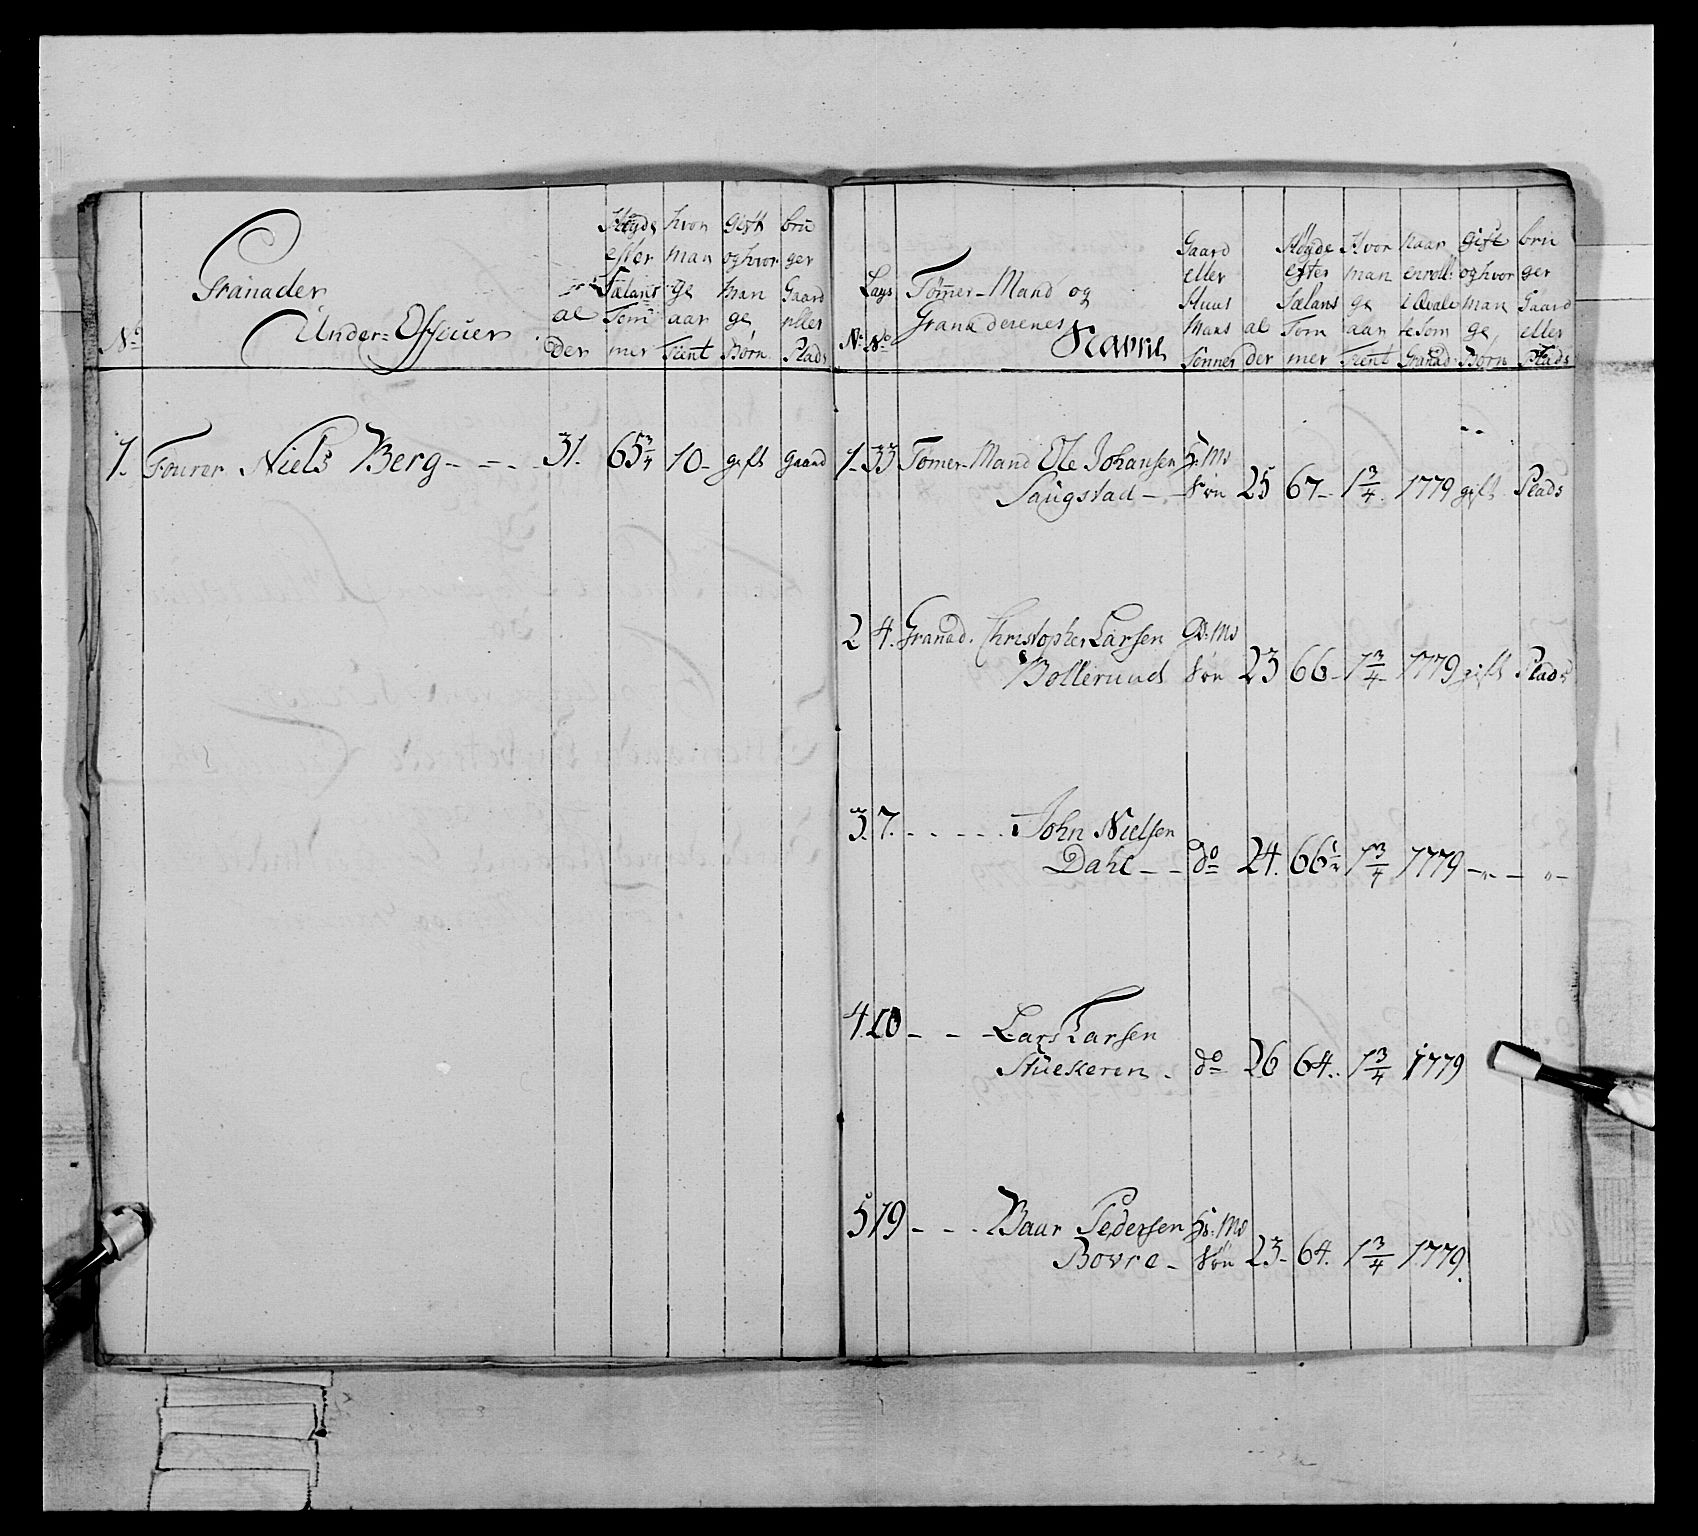 No
Granader
Under=Officier
al
der
Høyde
efter
Sælans
Tom
mer
hvor
man
ge
aar
Tient
gift
og hvor
man
ge
Børn
bru
ger
Gaard
eller
Plads
1. Fourer Niels Berg - - - 31. 65 3/4 10 - gift gaard
No
Lægs
No
Tømer-Mand og
Granaderenes
Navne
Gaard
eller
Huus
Mans
Sønner
al
der
Høyde
efter
Sælans
Tom
mer
Hvor
man
ge
aar
Tient
naar
enroll:
som
Granad:
gift
og hvor
man
ge
Børn
bru
ger
Gaard
eller
Plads
1. 33 Tømer-Mand Ole Johansen H: Ms
Saugstad - - Søn 25 67 - 1 3/4 1779 gift Plads
2 4. Granad. Christopher Larsen G: Ms
Bollerund Søn 23 66 - 1 3/4 1779 gift Plads
3. 7. - - - - - John Nielsen
Dahl - - do 24. 66 1/2 1 3/4 1779 - " - " -
4. 10 - - - Lars Larsen
do 26 64. 1 3/4 1779
5 19 - - - Baar Pedersen H: Ms
Bovre - Søn 23 - 64. 1 3/4 1779.